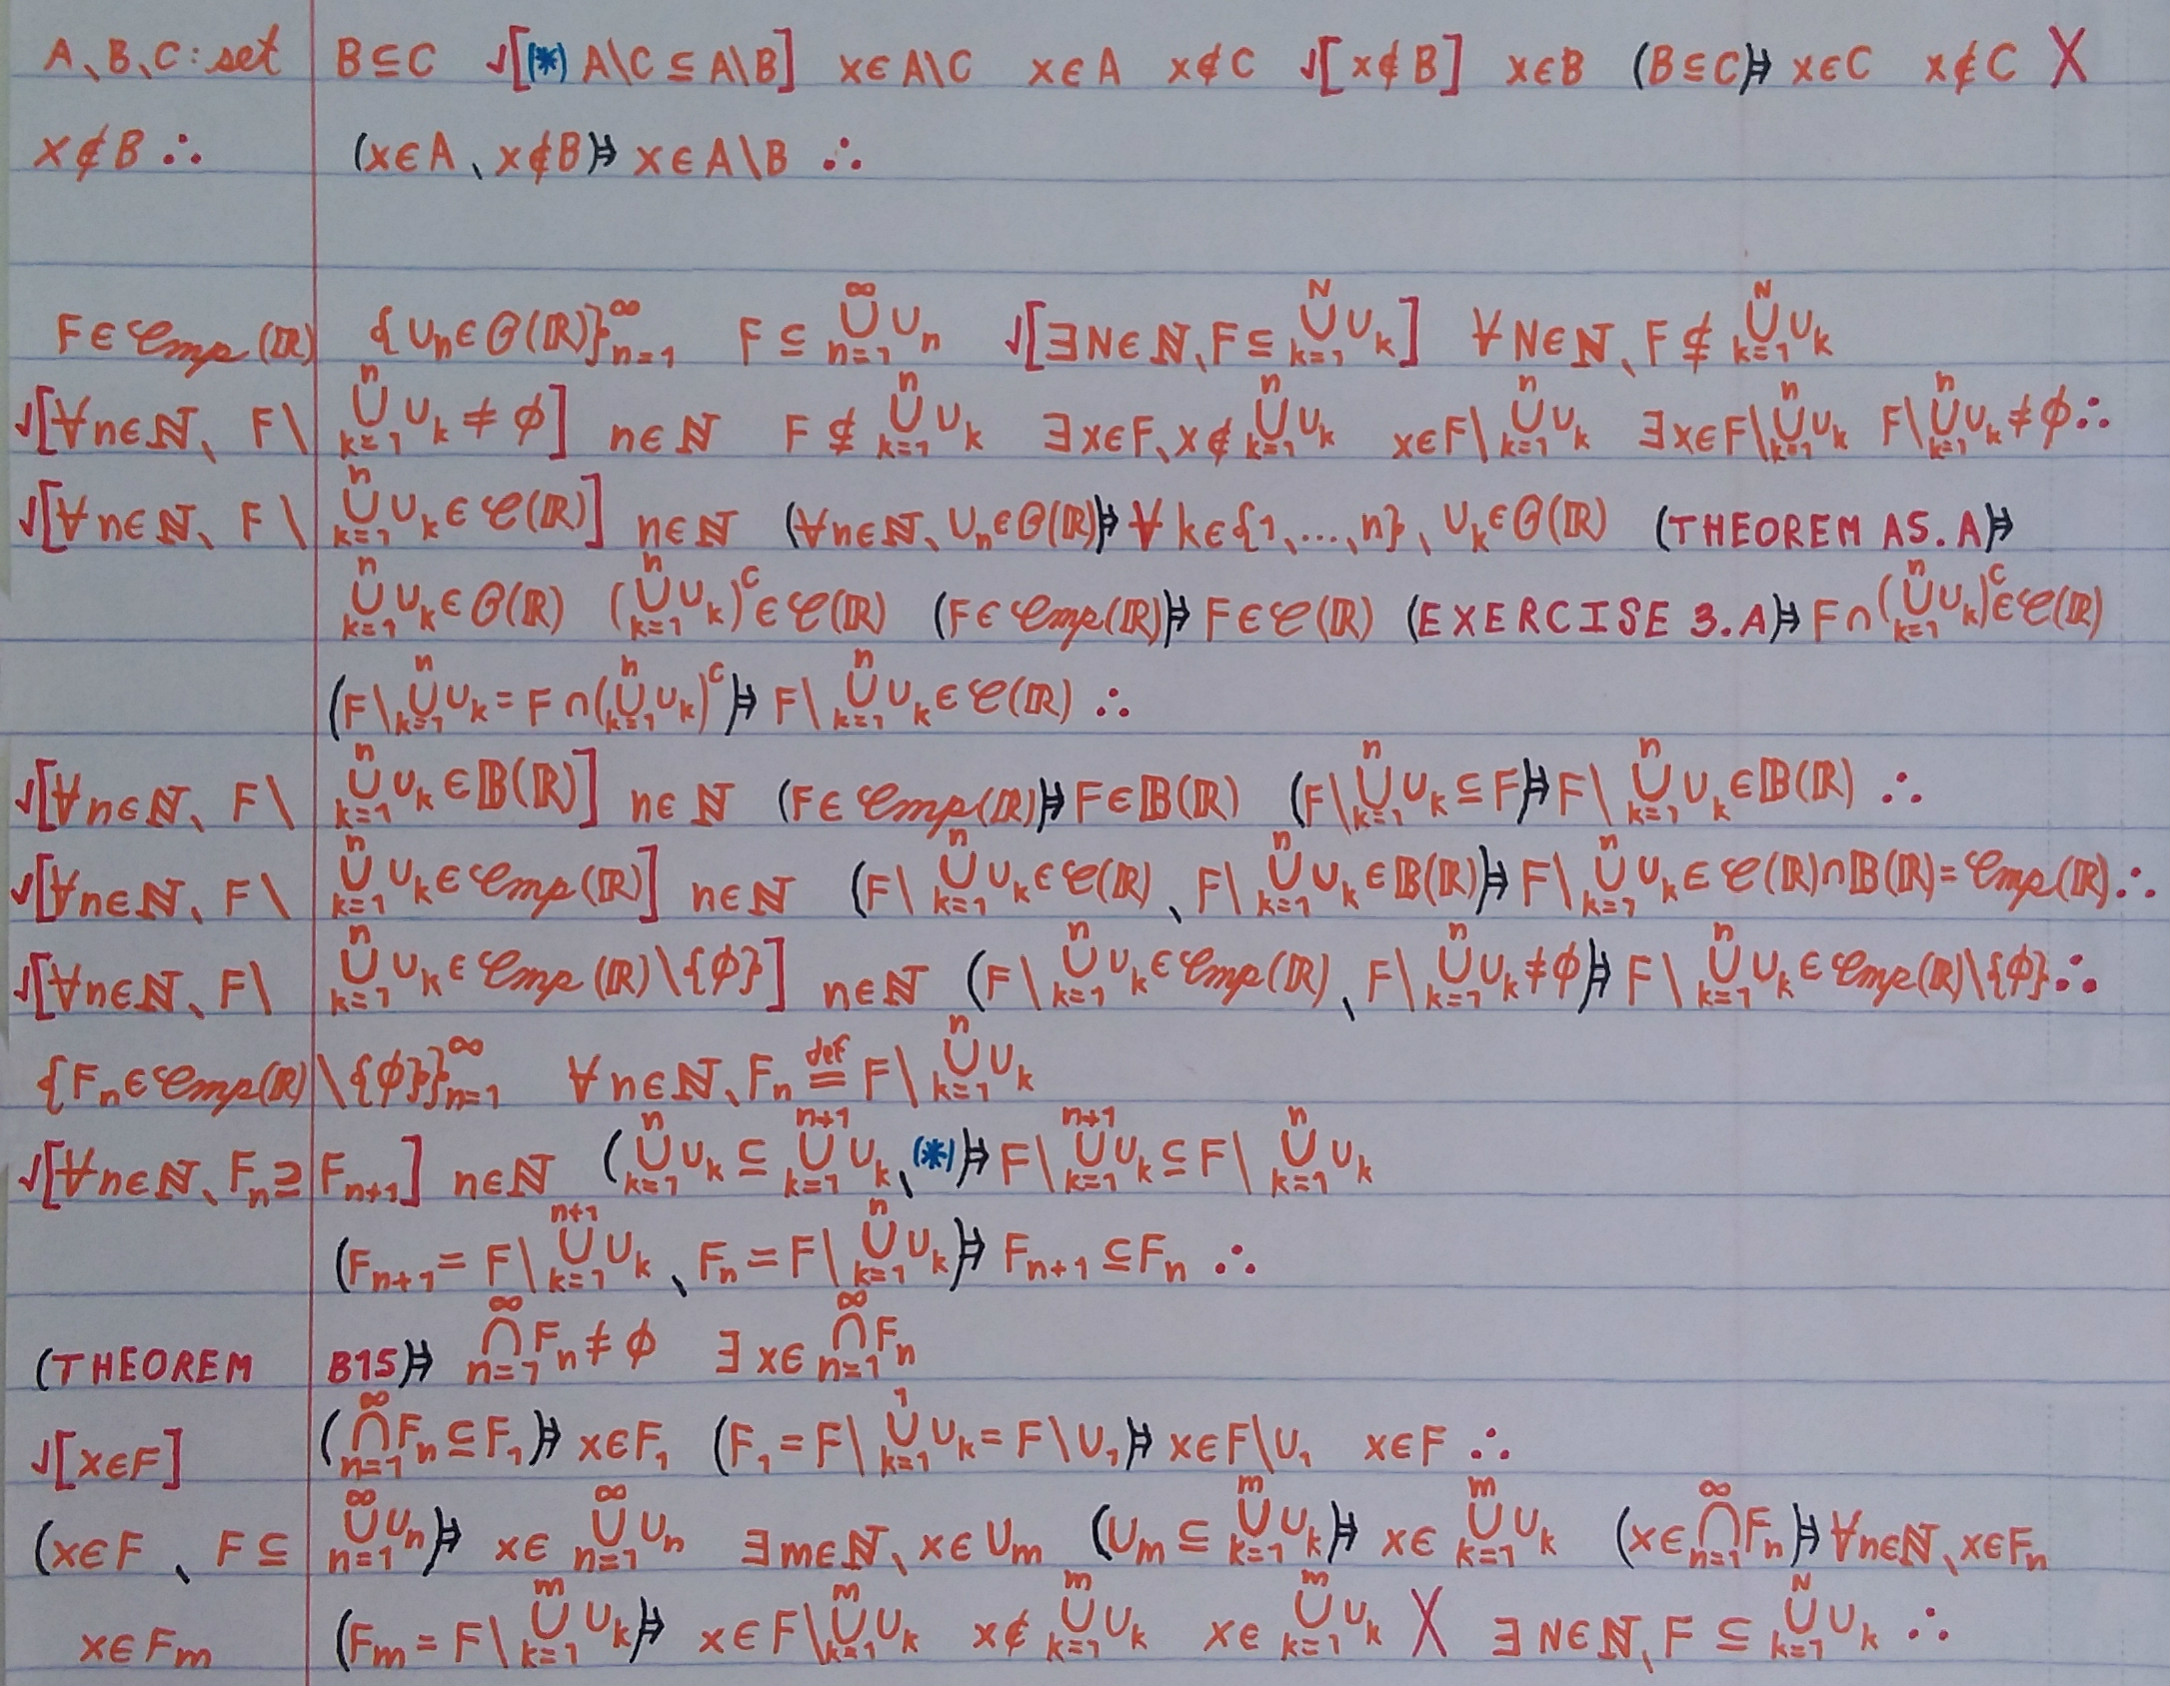 A、B、C: set B⊆C √[(*) A\C ⊆ A\B] x∈A\C x∈A x∉C √[x∉B] x∈B (B⊆C)⊨> x∈C x∉C X
x∉B ∴ (x∈A、x∉B)⊨> x∈A\B ∴
F∈𝒞mp(ℝ) {U_n∈𝒪(ℝ)}_{n=1}^∞ F ⊆ ⋃_{n=1}^∞ U_n √[∃N∈ℕ、F⊆⋃_{k=1}^N U_k] ∀N∈ℕ、F⊈⋃_{k=1}^N U_k
√[∀n∈ℕ、F\⋃_{k=1}^n U_k ≠ ∅] n∈ℕ F⊈⋃_{k=1}^n U_k ∃x∈F、x∉⋃_{k=1}^n U_k x∈F\⋃_{k=1}^n U_k ∃x∈F\⋃_{k=1}^n U_k F\⋃_{k=1}^n U_k≠∅ ∴
√[∀n∈ℕ、F\⋃_{k=1}^n U_k∈𝒞(ℝ)] n∈ℕ (∀n∈ℕ、U_n∈𝒪(ℝ))⊨> ∀k∈{1、...、n}、U_k∈𝒪(ℝ) (THEOREM A5.A)⊨>
⋃_{k=1}^n U_k∈𝒪(ℝ) (⋃_{k=1}^n U_k)^c∈𝒞(ℝ) (F∈𝒞mp(ℝ))⊨> F∈𝒞(ℝ) (EXERCISE 3.A)⊨> F∩(⋃_{k=1}^n U_k)^c∈𝒞(ℝ)
(F\⋃_{k=1}^n U_k = F∩(⋃_{k=1}^n U_k)^c)⊨> F\⋃_{k=1}^n U_k∈𝒞(ℝ) ∴
√[∀n∈ℕ、F\⋃_{k=1}^n U_k∈𝔹(ℝ)] n∈ℕ (F∈𝒞mp(ℝ))⊨> F∈𝔹(ℝ) (F\⋃_{k=1}^n U_k⊆F)⊨> F\⋃_{k=1}^n U_k∈𝔹(ℝ) ∴
√[∀n∈ℕ、F\⋃_{k=1}^n U_k∈𝒞mp(ℝ)] n∈ℕ (F\⋃_{k=1}^n U_k∈𝒞(ℝ)、F\⋃_{k=1}^n U_k∈𝔹(ℝ))⊨> F\⋃_{k=1}^n U_k∈𝒞(ℝ)∩𝔹(ℝ)=𝒞mp(ℝ) ∴
√[∀n∈ℕ、F\⋃_{k=1}^n U_k∈𝒞mp(ℝ)\{∅}] n∈ℕ (F\⋃_{k=1}^n U_k∈𝒞mp(ℝ)、F\⋃_{k=1}^n U_k≠∅)⊨> F\⋃_{k=1}^n U_k∈𝒞mp(ℝ)\{∅} ∴
{F_n∈𝒞mp(ℝ)\{∅}}_{n=1}^∞ ∀n∈ℕ、F_n ≝ F\⋃_{k=1}^n U_k
√[∀n∈ℕ、F_n⊇F_{n+1}] n∈ℕ (⋃_{k=1}^n U_k⊆⋃_{k=1}^{n+1} U_k、(*))⊨> F\⋃_{k=1}^{n+1} U_k⊆F\⋃_{k=1}^n U_k
(F_{n+1}=F\⋃_{k=1}^{n+1} U_k、F_n=F\⋃_{k=1}^n U_k)⊨> F_{n+1}⊆F_n ∴
(THEOREM B15)⊨> ⋂_{n=1}^∞ F_n≠∅ ∃x∈⋂_{n=1}^∞ F_n
√[x∈F] (⋂_{n=1}^∞ F_n⊆F_1)⊨> x∈F_1 (F_1=F\⋃_{k=1}^1 U_k=F\U_1)⊨> x∈F\U_1 x∈F ∴
(x∈F、F⊆⋃_{n=1}^∞ U_n)⊨> x∈⋃_{n=1}^∞ U_n ∃m∈ℕ、x∈U_m (U_m⊆⋃_{k=1}^m U_k)⊨> x∈⋃_{k=1}^m U_k (x∈⋂_{n=1}^∞ F_n)⊨> ∀n∈ℕ、x∈F_n
x∈F_m (F_m=F\⋃_{k=1}^m U_k)⊨> x∈F\⋃_{k=1}^m U_k x∉⋃_{k=1}^m U_k x∈⋃_{k=1}^m U_k X ∃N∈ℕ、F⊆⋃_{k=1}^N U_k ∴